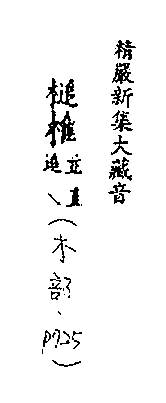 精嚴新集大藏音
槌椎並直追(木部、p725)